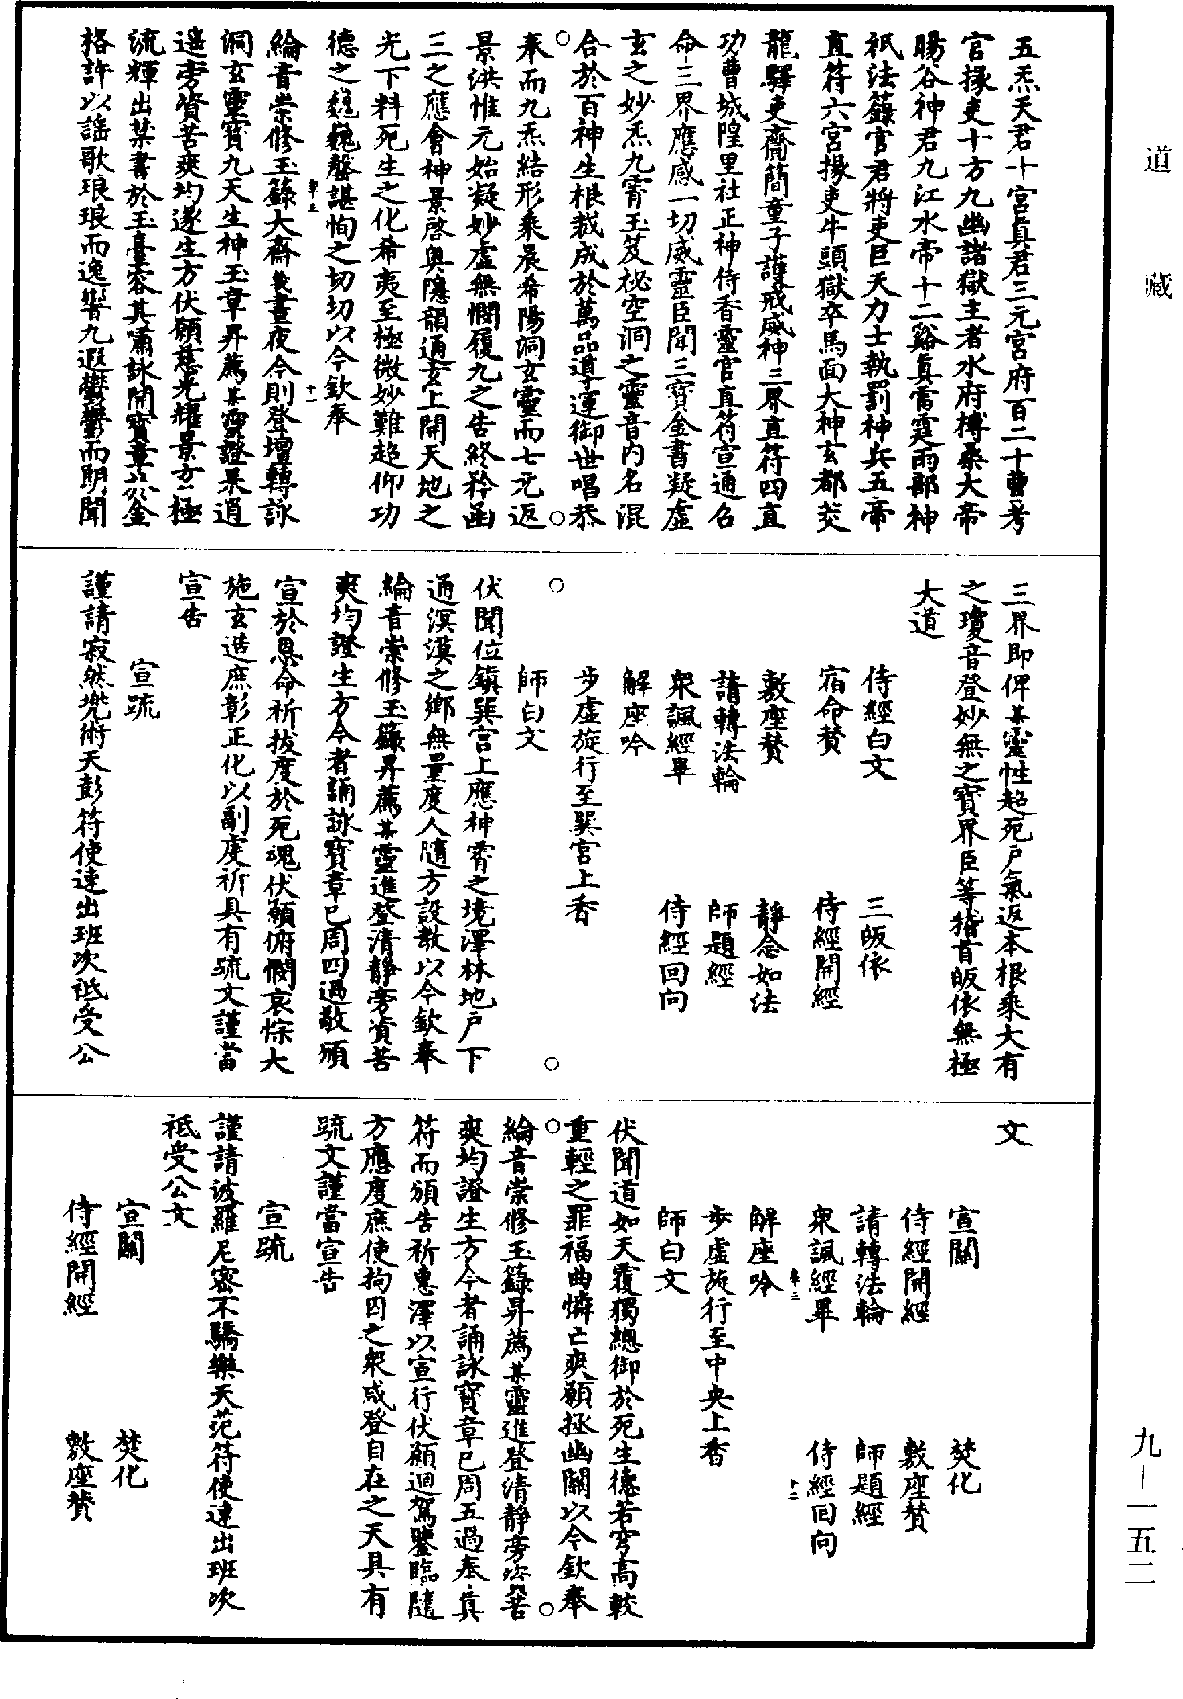 道藏
五炁天君十宮真君三元宮府百二十曹考
官掾吏十方九幽諸獄主者水府榑桑大帝
暘谷神君九江水帝十二谿真雷霆雨部神
祇法籙官君將吏巨天力士執罰神兵五帝
直符六宮掾吏牛頭獄卒馬面大神玄都茭
龍驛吏齋簡童子護戒威神三界直符四直
功曹城隍里社正神侍香靈官直符宣通召
命三界應感一切威靈臣聞三寶金書凝虛
玄之妙炁九霄玉笈祕空洞之靈音內名混
合於百神生根裁成於萬品道運御世唱恭
○ ○
來而九炁結形乘晨希陽洞玄靈而七元返
景洪惟元始凝妙虛無憫履九之告終矜函
三之應會神景啓輿隱韻通玄上開天地之
光下料死生之化希夷至極微妙難趨仰功
德之巍巍罄諶恂之切切以今欽奉
綸音崇修玉籙大齋幾晝夜今則登壇轉詠
洞玄靈寶九天生神玉章昇薦某靈證果逍
遥旁資苦爽均遂生方伏願慈光耀景方極
流輝出某書於玉臺容其嘯詠開寶章於金
格許以謡歌琅琅而逸響九遐鬱鬱而朗聞
三界即俾某靈性超死戶氣返本根乘大有
之瓊音登妙無之寶界臣等稽首皈依無極
大道
侍經白文 三皈依
宿命贊 侍經開經
敷座贊 靜念如法
請轉法輪 師題經
衆諷經畢 侍經回向
解座吟
步虛旋行至巽宮上香
師白文
○ ○
伏聞位鎮巽宮上應神霄之境澤林地戶下
通溟漠之鄉無量度人隨方設教以今欽奉
綸音崇修玉籙昇薦某靈進登清靜旁資苦
爽均證生方今者誦詠寶章已周四過敬頒
宣於恩命祈拔度於死魂伏願俯憫哀悰大
施玄造庶彰正化以副虔祈具有疏文謹當
宣告
宣疏
謹請寂然兜術天彭符使速出班次祗受公
文
宣關 焚化
侍經開經 敷座贊
請轉法輪 師題經
衆諷經畢 侍經回向
解座吟
步虛旋行至中央上香
師白文
伏聞道如天覆獨總御於死生德若穹高較
重輕之罪福曲憐亡爽願拯幽關以今欽奉
○ ○
綸音崇修玉籙昇薦某靈進登清靜旁資苦
爽均證生方今者誦詠寶章已周五過奉真
符而頒告祈惠澤以宣行伏願迴駕鑒臨隨
方應度庶使拘囚之衆咸登自在之天具有
疏文謹當宣告
宣疏
謹請波羅尼密不驕樂天范符使速出班次
祗受公文
宣關 焚化
侍經開經 敷座贊
九－一五二